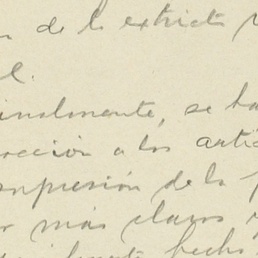 de la extricta
l.
inalmente, se ha
rección a los artíc
mpresión de la
más claros y
hecho